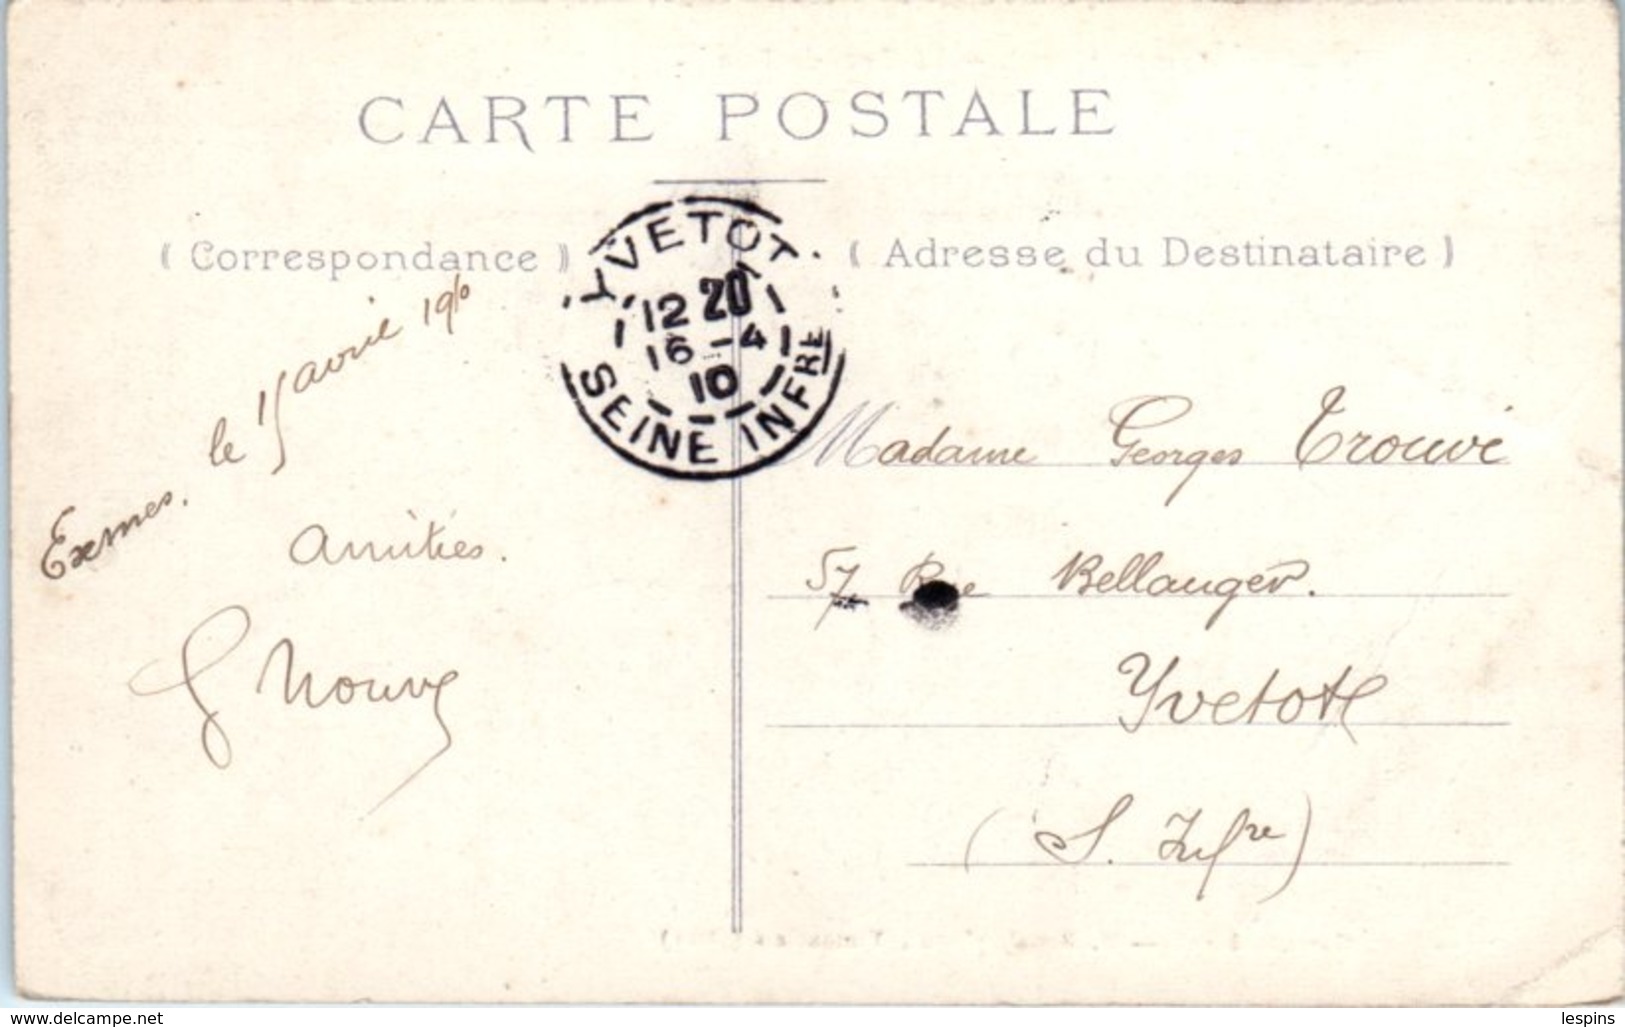 CARTE POSTALE
( Correspondance )
( Adresse du Destinataire )
YVETOT
12 20
16 - 4
10
SEINE INFRE
Exmes. le 15 avril 1910
Amitiés.
Madame Georges Trouvé
57 Rue Bellanger.
Yvetot
(S. Infre)
www.delcampe.net
lespins